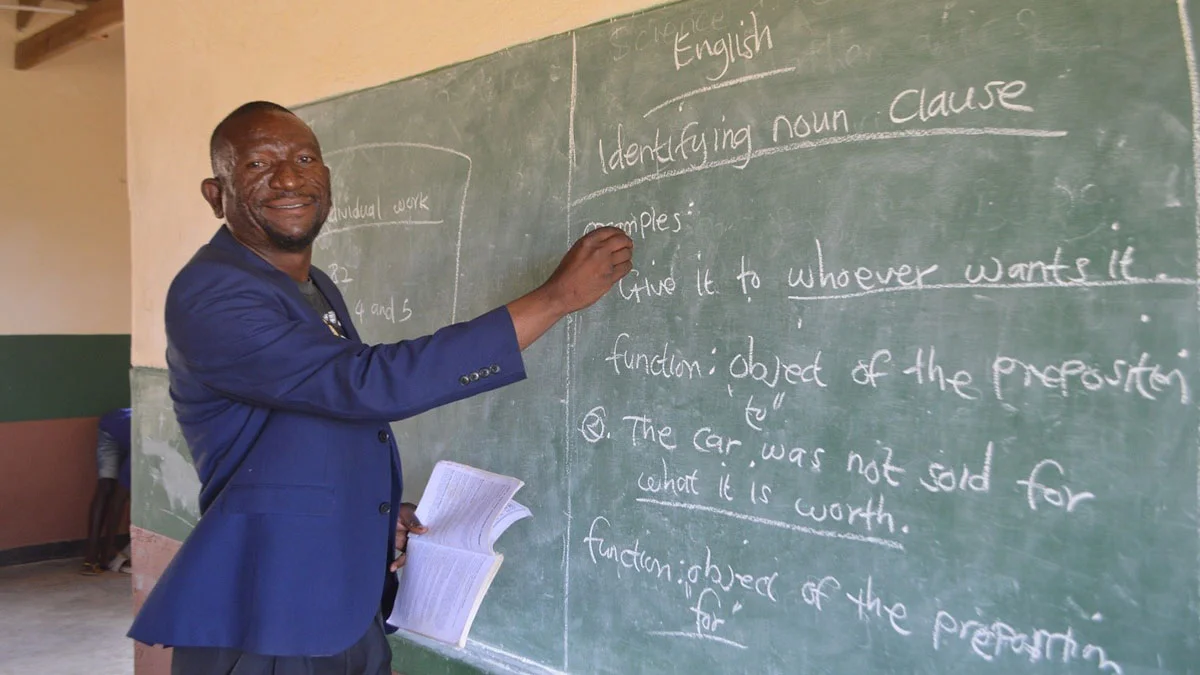 individual work
82
4 and 5
Science
English
Identifying noun Clause
examples:
Give it to whoever wants it.
function: object of the preposition
"to"
②. The car was not sold for
what it is worth.
function: object of the preposition
"for"